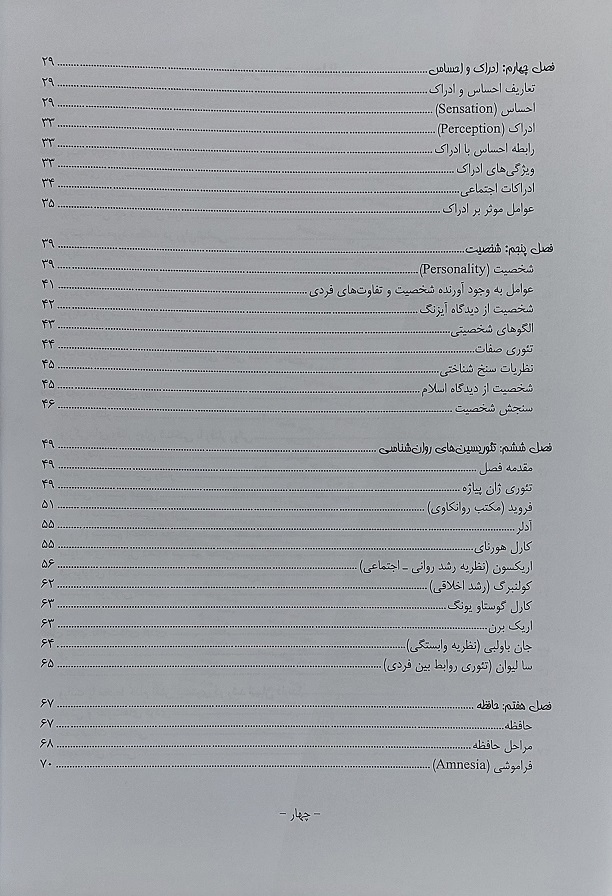 فصل چهارم: ادراک و احساس ........ ۲۹
تعاریف احساس و ادراک ........ ۲۹
احساس (Sensation) ........ ۲۹
ادراک (Perception) ........ ۳۳
رابطه احساس با ادراک ........ ۳۳
ویژگی‌های ادراک ........ ۳۳
ادراکات اجتماعی ........ ۳۴
عوامل موثر بر ادراک ........ ۳۵
فصل پنجم: شخصیت ........ ۳۹
شخصیت (Personality) ........ ۳۹
عوامل به وجود آورنده شخصیت و تفاوت‌های فردی ........ ۴۱
شخصیت از دیدگاه آیزنگ ........ ۴۲
الگوهای شخصیتی ........ ۴۳
تئوری صفات ........ ۴۴
نظریات سنخ شناختی ........ ۴۵
شخصیت از دیدگاه اسلام ........ ۴۵
سنجش شخصیت ........ ۴۶
فصل ششم: تئوریسین‌های روان‌شناسی ........ ۴۹
مقدمه فصل ........ ۴۹
تئوری ژان پیاژه ........ ۴۹
فروید (مکتب روانکاوی) ........ ۵۱
آدلر ........ ۵۵
کارل هورنای ........ ۵۵
اریکسون (نظریه رشد روانی ـ اجتماعی) ........ ۵۶
کولنبرگ (رشد اخلاقی) ........ ۶۲
کارل گوستاو یونگ ........ ۶۳
اریک برن ........ ۶۳
جان باولبی (نظریه وابستگی) ........ ۶۴
سا لیوان (تئوری روابط بین فردی) ........ ۶۵
فصل هفتم: حافظه ........ ۶۷
حافظه ........ ۶۷
مراحل حافظه ........ ۶۸
فراموشی (Amnesia) ........ ۷۰
– چهار –